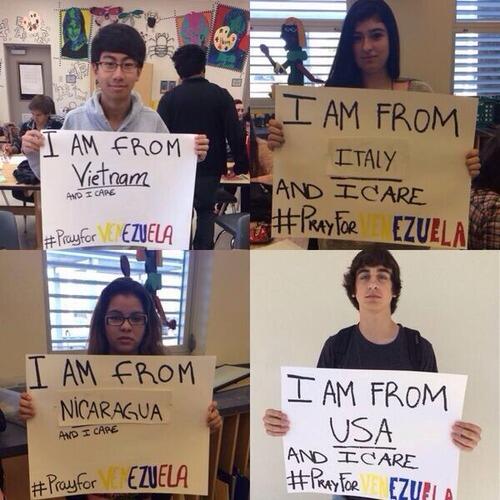 I AM FROM
Vietnam
AND I CARE
#Prayfor VENEZUELA
I AM FROM
ITALY
AND I CARE
#PRAYFOR VENEZUELA
I AM FROM
NICARAGUA
AND I CARE
#Prayfor VENEZUELA
I AM FROM
USA
AND I CARE
#PRAYFOR VENEZUELA